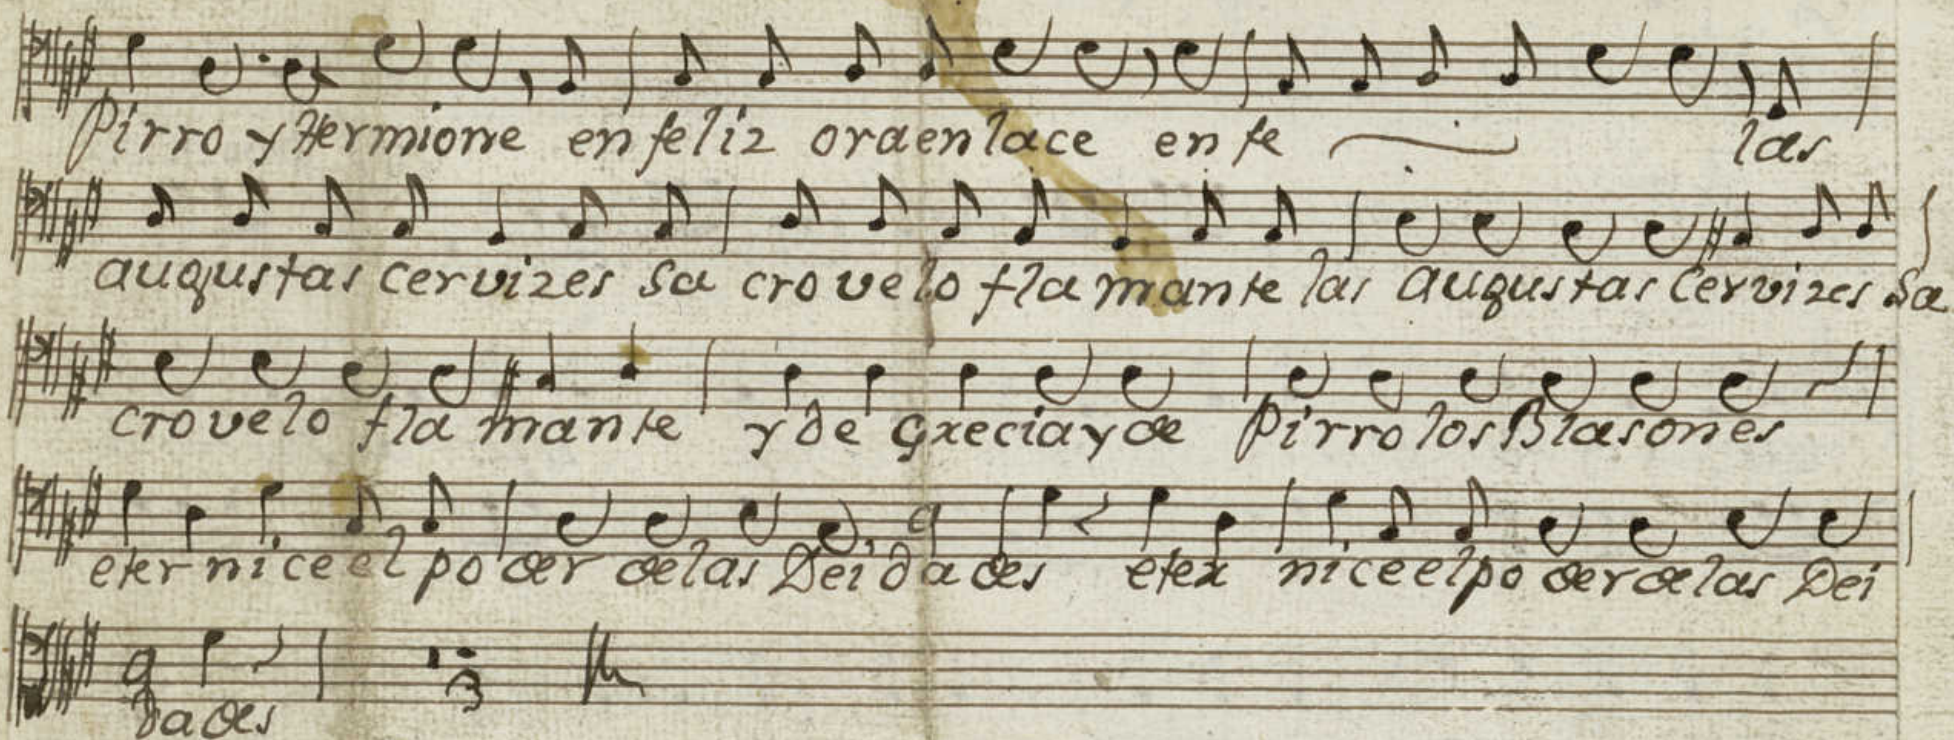 Pirro y Hermione en feliz ora en lace en fe las
augustas cervizes Sa cro velo fla mante las augustas Cervizes Sa
cro velo fla mante y de Grecia y de Pirro los Blasones
eter nice el poder de las Dei dades eter nice el poder de las Dei
dades
3